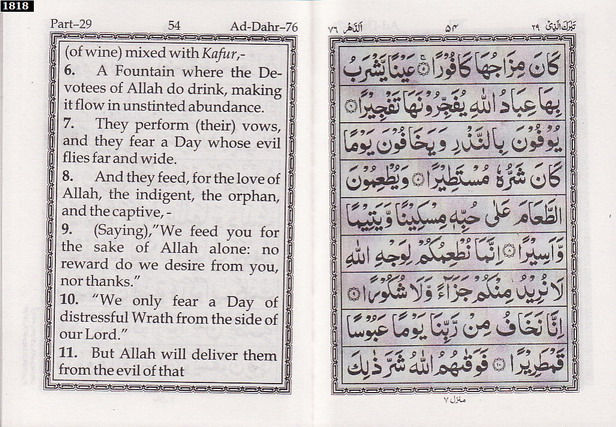 1818
Part–29 54 Ad-Dahr–76
(of wine) mixed with Kafur,-
6. A Fountain where the De-
votees of Allah do drink, making
it flow in unstinted abundance.
7. They perform (their) vows,
and they fear a Day whose evil
flies far and wide.
8. And they feed, for the love of
Allah, the indigent, the orphan,
and the captive, -
9. (Saying),"We feed you for
the sake of Allah alone: no
reward do we desire from you,
nor thanks."
10. "We only fear a Day of
distressful Wrath from the side of
our Lord."
11. But Allah will deliver them
from the evil of that
تَبٰرَكَ الَّذِیْ ۲۹ ۵۴ اَلدَّهْر ۷۶
كَانَ مِزَاجُهَا كَافُوْرًا ۝۵ عَيْنًا يَّشْرَبُ
بِهَا عِبَادُ اللّٰهِ يُفَجِّرُوْنَهَا تَفْجِيْرًا ۝۶
يُوْفُوْنَ بِالنَّذْرِ وَيَخَافُوْنَ يَوْمًا
كَانَ شَرُّهٗ مُسْتَطِيْرًا ۝۷ وَيُطْعِمُوْنَ
الطَّعَامَ عَلٰى حُبِّهٖ مِسْكِيْنًا وَّيَتِيْمًا
وَّاَسِيْرًا ۝۸ اِنَّمَا نُطْعِمُكُمْ لِوَجْهِ اللّٰهِ
لَا نُرِيْدُ مِنْكُمْ جَزَآءً وَّلَا شُكُوْرًا ۝۹
اِنَّا نَخَافُ مِنْ رَّبِّنَا يَوْمًا عَبُوْسًا
قَمْطَرِيْرًا ۝۱۰ فَوَقٰىهُمُ اللّٰهُ شَرَّ ذٰلِكَ
منزل ۷